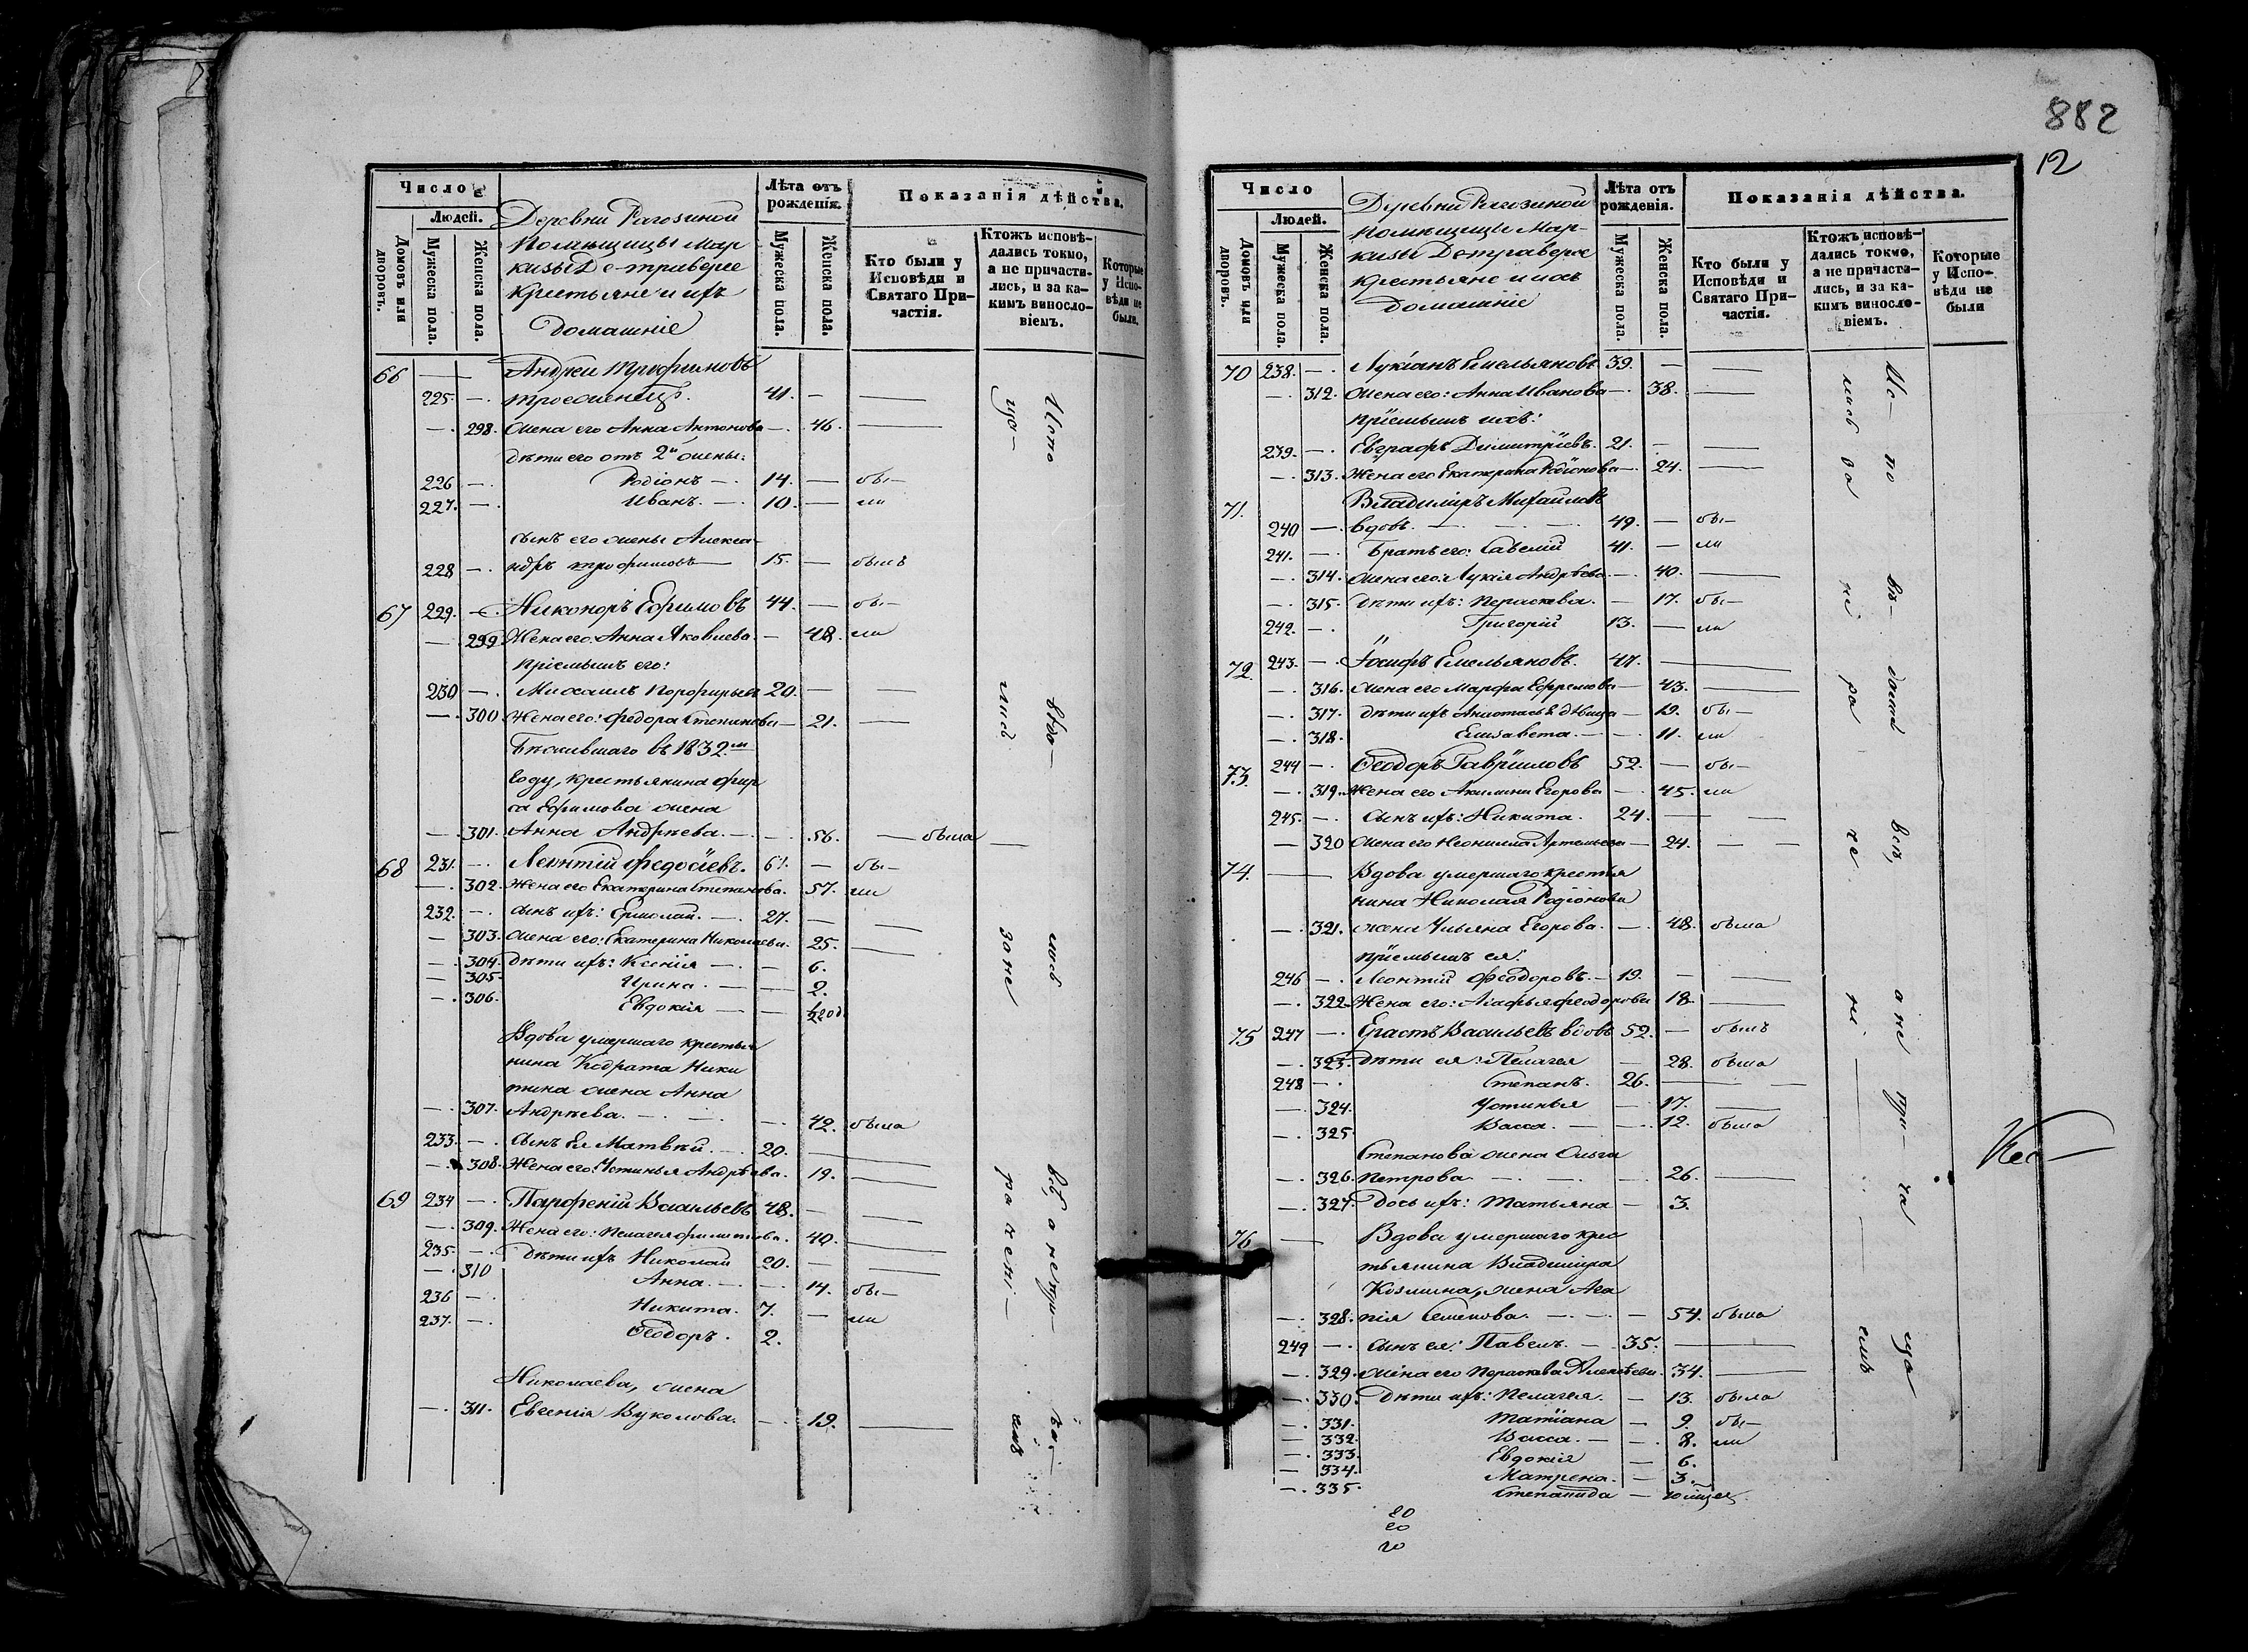 Число
Людей.
Домовъ или дворовъ.
Мужеска пола.
Женска пола.
Деревни Рагозиной
Помѣщицы Мар
кизы Де-траверсе
Крестьяне и ихъ
домашніе
Лѣта отъ рожденія.
Мужеска пола.
Женска пола.
Показанія дѣйства.
Кто были у Исповѣди и Святаго Причастія.
Ктожъ исповѣдались токмо, а не причастились, и за какимъ винословіемъ.
Которые у Исповѣди не были.
66 — Андрей Трофимовъ
225. —. троеженецъ. 41. —
—. 298. жена его Анна Антонова —. 46. —
дѣти его отъ 2й жены:
226 —. Родіонъ —. 14. — бы—
227. —. Иванъ. —. 10. — ли
сынъ его жены Алекса-
228 —. ндръ трофимовъ — 15. — былъ
67 229. —. Никоноръ Ефимовъ 44. — бы—
— 299 Жена его: Анна Яковлева. — 48. ли
пріемышъ его:
230 —. Михаилъ Порфирьевъ 20. — —
—. 300 Жена его: Федора Степанова — 21. —
Бѣжившаго въ 1832м
году, крестьянина Фир
са Ефимова жена
—. 301. Анна Андрѣева. —. —. 56. — была —
68 231. —. Леонтій Федосѣевъ. 61. — бы—
—. 302. Жена его Екатерина Степанова. 57. ли
232. —. сынъ ихъ: Ермолай. —. 27. —
— 303. жена его: Екатерина Николаева. 25. —
—. 304. дѣти ихъ: Ксенія —. — 6.
— 305. Ирина. — — 2.
—. 306. Евдокія — — ½ год.
Вдова умершаго крестья
нина Кодрата Ники
тина жена Анна
—. 307. Андрѣева. —. —. —. 42. была
233. —. сынъ ея Матвѣй. —. 20. —
—. 308. Жена его: Устинья Андрѣева. 19. —
69 234 —. Парфеній Васильевъ 48. — —
—. 309. Жена его: Пелагея Филиппова. 40. —
235. —. дѣти ихъ Николай 20. — —
—. 310 Анна. — —. 14. бы—
236 —. Никита. 7. — ли
237. —. Ѳеодоръ. 2.
Николаева, жена
—. 311. Евгенія Вуколова. —. 19. —
882
12
Число
Людей.
Домовъ или дворовъ.
Мужеска пола.
Женска пола.
Деревни Рагозиной
помѣщицы Мар-
кизы Детраверсе
крестьяне и ихъ
Домашніе
Лѣта отъ рожденія.
Мужеска пола.
Женска пола.
Показанія дѣйства.
Кто были у Исповѣди и Святаго Причастія.
Ктожъ исповѣдались токмо, а не причастились, и за какимъ винословіемъ.
Которые у Исповѣди не были
70 238. —. Лукіанъ Емельяновъ 39. — —
—. 312. жена его: Анна Иванова —. 38. —
пріемышъ ихъ:
239. —. Евграфъ Димитріевъ. 21. — —
—. 313. Жена его Екатерина Родіонова —. 24. —
71. Владиміръ Михайловъ
240 —. вдовъ. —. —. —. 49. — бы—
241. —. Братъ его: Савелій 41. — ли
—. 314. жена его: Лукія Андрѣева. —. 40. —
—. 315. дѣти ихъ: Параскева. — 17. бы—
242. —. Григорій 13. — ли
72. 243. —. Іосифъ Емельяновъ. 47. —
—. 316. жена его Марфа Ефремова — 43. —
—. 317. дѣти ихъ Анастасія дѣвица — 19. бы—
—. 318. Елисавета. — —. 11. ли
73. 244 —. Ѳеодоръ Гавріиловъ 52. — бы—
—. 319. Жена его Акилина Егорова —. 45. ли
245. —. сынъ ихъ: Никита. 24. — —
— 320 жена его Неонилла Артемьева — 24. — —
74. — Вдова умершаго крестья
нина Николая Родіонова
—. 321. жена Ульяна Егорова. —. 48. была
пріемышъ ея:
246 —. Леонтій Феодоровъ. — 19. — —
—. 322. Жена его: Агафья Феодорова 18. —
75 247 —. Ерастъ Васильевъ вдовъ 52. — былъ
—. 323. дѣти ея: Пелагея — 28. была
248 —. Степанъ. 26. — —
—. 324. Устинья — 17. —
—. 325. Васса. — —. 12. была
Степанова жена Ольга
—. 326. Петрова. —. —. —. 26. —
—. 327. дочь ихъ: Татьяна — 3.
76 — Вдова умершаго крес
тьянина Владиміра
Козмина, жена Ага
—. 328. пія Семенова. —. —. — 54. была
249 —. сынъ ея: Павелъ. — 35. —
—. 329. жена его Параскева Алексѣева. 34. —
—. 330. Дѣти ихъ: Пелагея. — 13. была
—. 331. Татіана — 9. бы—
—. 332. Васса. — —. 8. ли
—. 333. Евдокія — 6.
— 334. Матрена. — 3.
—. 335. Степанида —
20
20
20